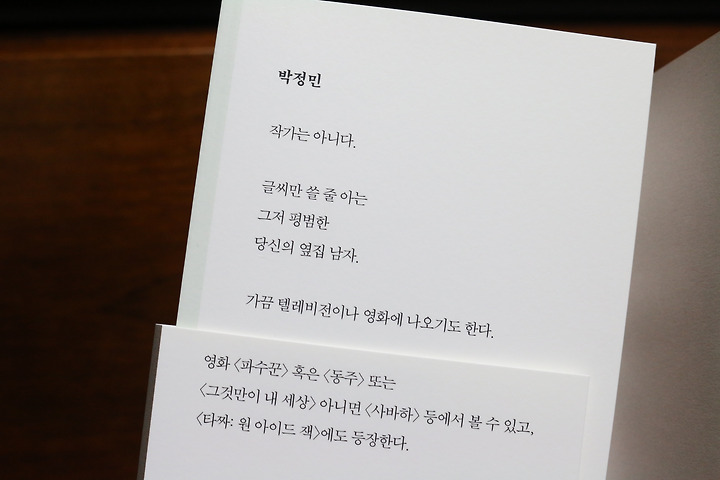 박정민
작가는 아니다.
글씨만 쓸 줄 아는
그저 평범한
당신의 옆집 남자.
가끔 텔레비전이나 영화에 나오기도 한다.
영화 〈파수꾼〉 혹은 〈동주〉 또는
〈그것만이 내 세상〉 아니면 〈사바하〉 등에서 볼 수 있고,
〈타짜: 원 아이드 잭〉에도 등장한다.